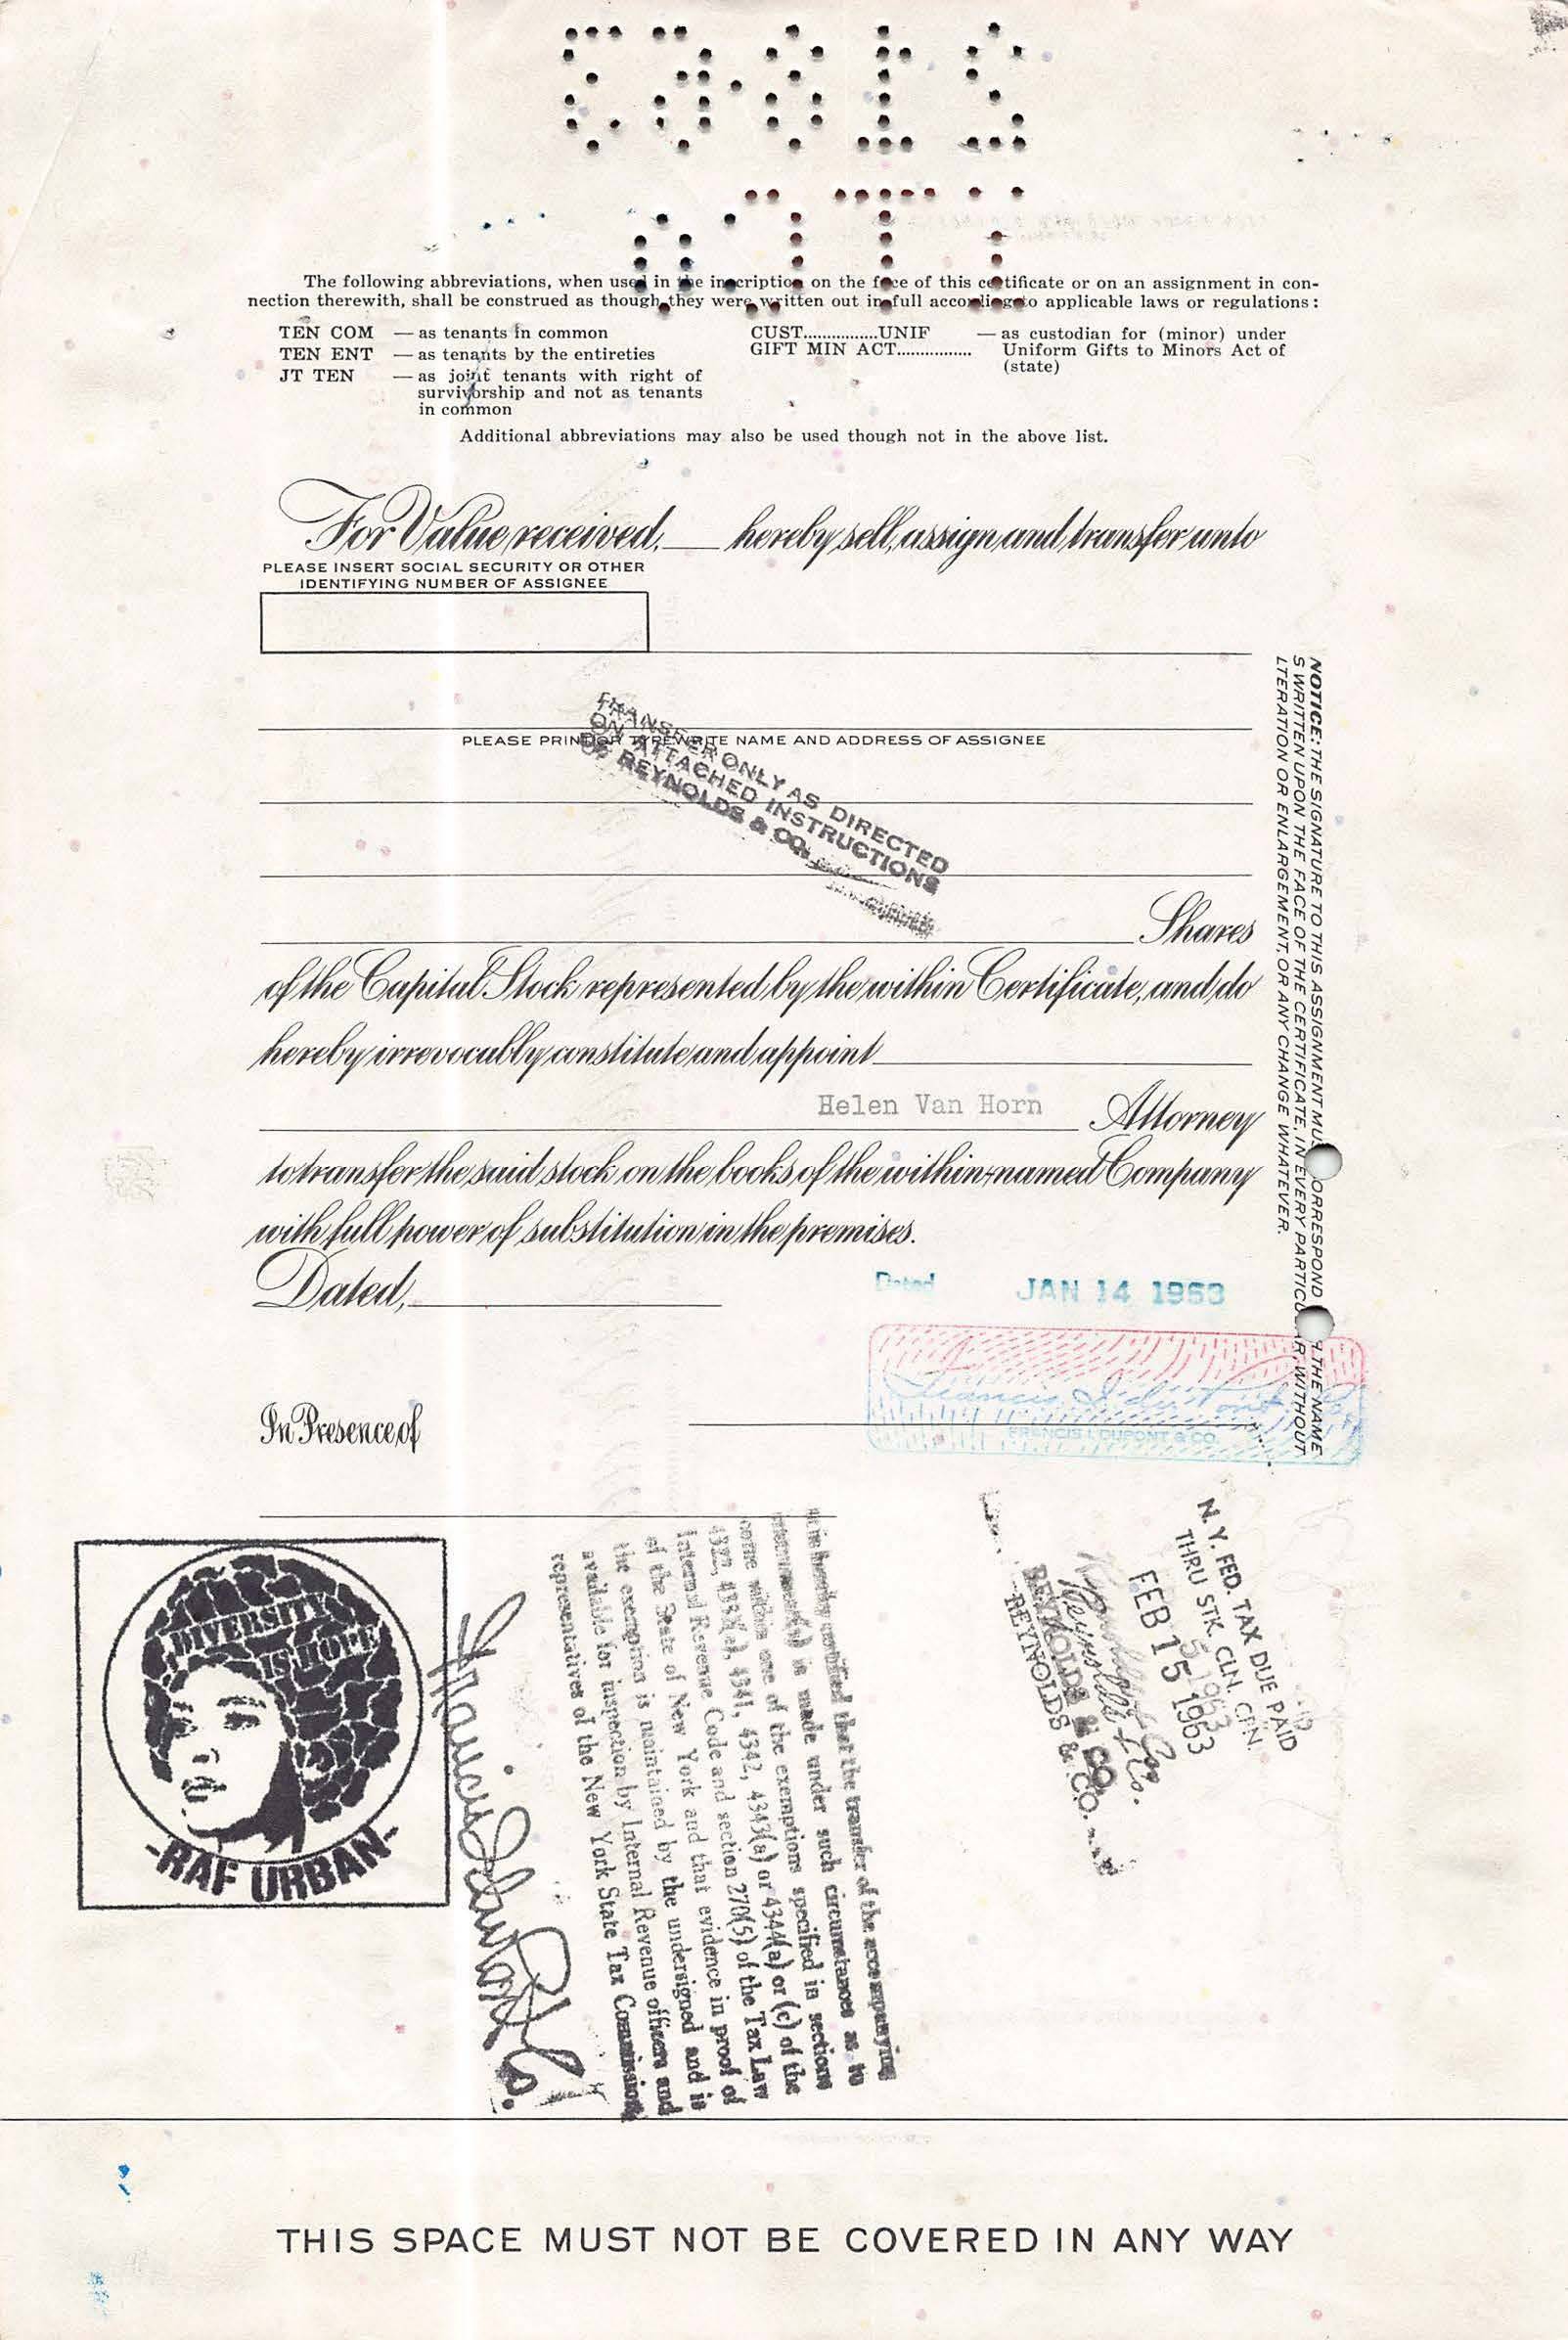 The following abbreviations, when used in the inscription on the face of this certificate or on an assignment in con-
nection therewith, shall be construed as though they were written out in full according to applicable laws or regulations:
TEN COM — as tenants in common
TEN ENT — as tenants by the entireties
JT TEN — as joint tenants with right of
survivorship and not as tenants
in common
CUST................UNIF — as custodian for (minor) under
GIFT MIN ACT................ Uniform Gifts to Minors Act of
(state)
Additional abbreviations may also be used though not in the above list.
For Value received, ____ hereby sell, assign and transfer unto
PLEASE INSERT SOCIAL SECURITY OR OTHER
IDENTIFYING NUMBER OF ASSIGNEE
PLEASE PRINT OR TYPEWRITE NAME AND ADDRESS OF ASSIGNEE
TRANSFER ONLY AS DIRECTED
ON ATTACHED INSTRUCTIONS
OF REYNOLDS & CO.
Shares
of the Capital Stock represented by the within Certificate, and do
hereby irrevocably constitute and appoint
Helen Van Horn Attorney
to transfer the said stock on the books of the within-named Company
with full power of substitution in the premises.
Dated,
Dated JAN 14 1963
FRANCIS I. DUPONT & CO.
In Presence of
NOTICE: THE SIGNATURE TO THIS ASSIGNMENT MU ORRESPOND H THE NAME
S WRITTEN UPON THE FACE OF THE CERTIFICATE, IN EVERY PARTICU AR, WITHOUT
LTERATION OR ENLARGEMENT, OR ANY CHANGE WHATEVER.
DIVERSITY
IS HOPE
-RAF URBAN-
it is hereby certified that the transfer of the accompanying
is made under such circumstances as to
come within one of the exemptions specified in sections
4322, 4333(a), 4341, 4342, 4343(a) or 4344(a) or (c) of the
Internal Revenue Code and section 270(5) of the Tax Law
of the State of New York and that evidence in proof of
the exemption is maintained by the undersigned and is
available for inspection by Internal Revenue officers and
representatives of the New York State Tax Commission
Francis I. duPont & Co.
N. Y. FED. TAX DUE PAID
THRU STK. CLN. CPN.
FEB 15 1963
Reynolds & Co.
REYNOLDS & CO.
REYNOLDS & CO.
THIS SPACE MUST NOT BE COVERED IN ANY WAY